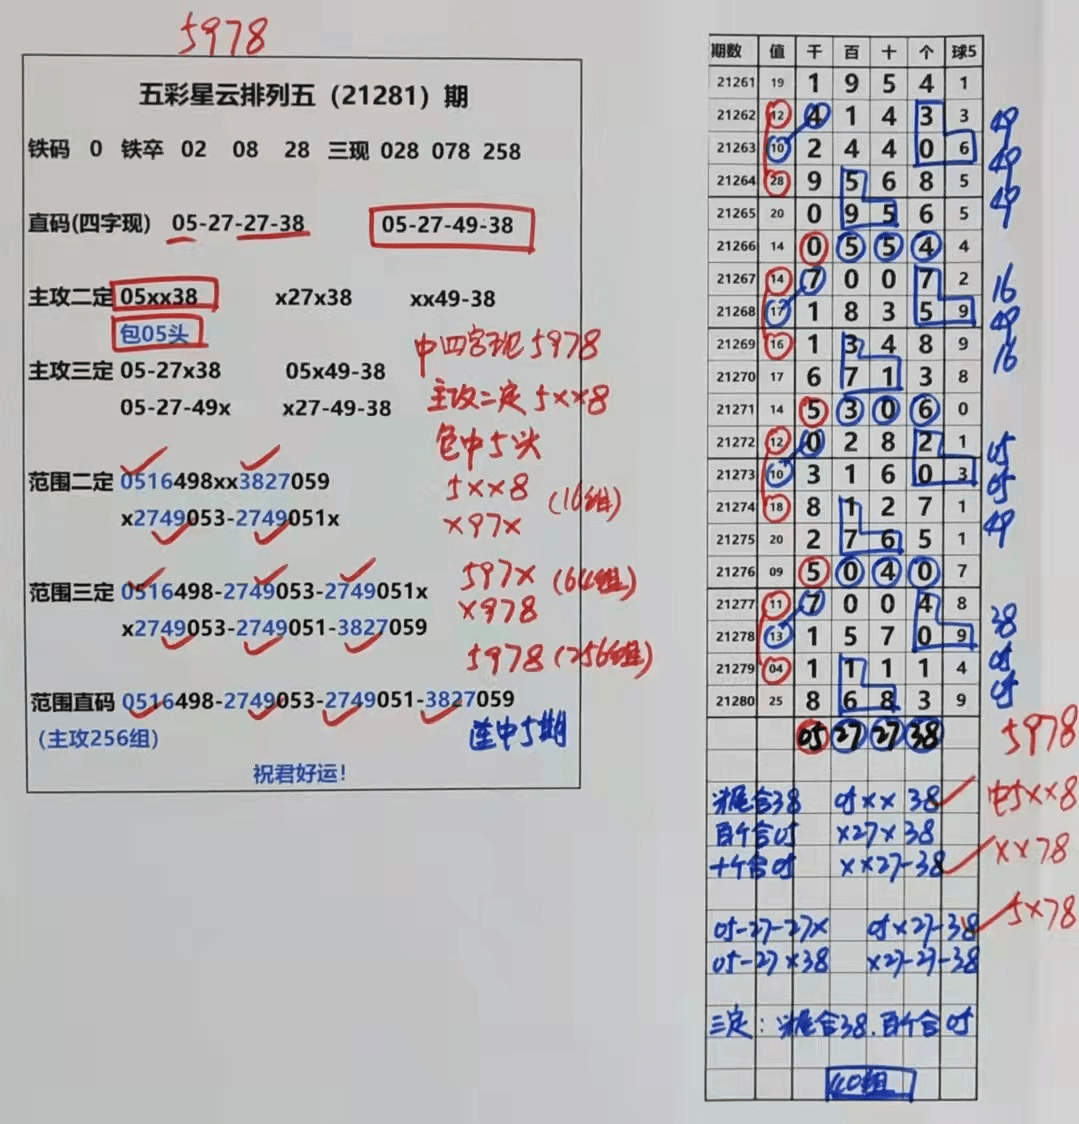 5978
五彩星云排列五（21281）期
铁码 0 铁卒 02 08 28 三现 028 078 258
直码(四字现) 05-27-27-38 05-27-49-38
主攻二定 05xx38 x27x38 xx49-38
包05头
中四字现5978
主攻三定 05-27x38 05x49-38
主攻二定5xx8
05-27-49x x27-49-38
包中5头
范围二定 0516498xx3827059
5xx8
(16组)
x2749053-2749051x
x97x
范围三定 0516498-2749053-2749051x
597x (64组)
x978
x2749053-2749051-3827059
5978 (256组)
范围直码 0516498-2749053-2749051-3827059
(主攻256组)
连中5期
祝君好运!
期数 值 千 百 十 个 球5
21261 19 1 9 5 4 1
21262 12 4 1 4 3 3 49
21263 10 2 4 4 0 6 49
21264 28 9 5 6 8 5 49
21265 20 0 9 5 6 5
21266 14 0 5 5 4 4
21267 14 7 0 0 7 2 16
21268 17 1 8 3 5 9 49
21269 16 1 3 4 8 9 16
21270 17 6 7 1 3 8
21271 14 5 3 0 6 0
21272 12 0 2 8 2 1 05
21273 10 3 1 6 0 3 05
21274 18 8 1 2 7 1 49
21275 20 2 7 6 5 1
21276 09 5 0 4 0 7
21277 11 7 0 0 4 8 38
21278 13 1 5 7 0 9 05
21279 04 1 1 1 1 4 05
21280 25 8 6 8 3 9
05 27 27 38 5978
尾合38 05xx 38 中5xx8
百个合05 x27x 38
十个合05 xx27-38 xx78
05-27-27x 05x27-38 5x78
05-27x38 x27-27-38
三定：尾合38.百个合05
40组